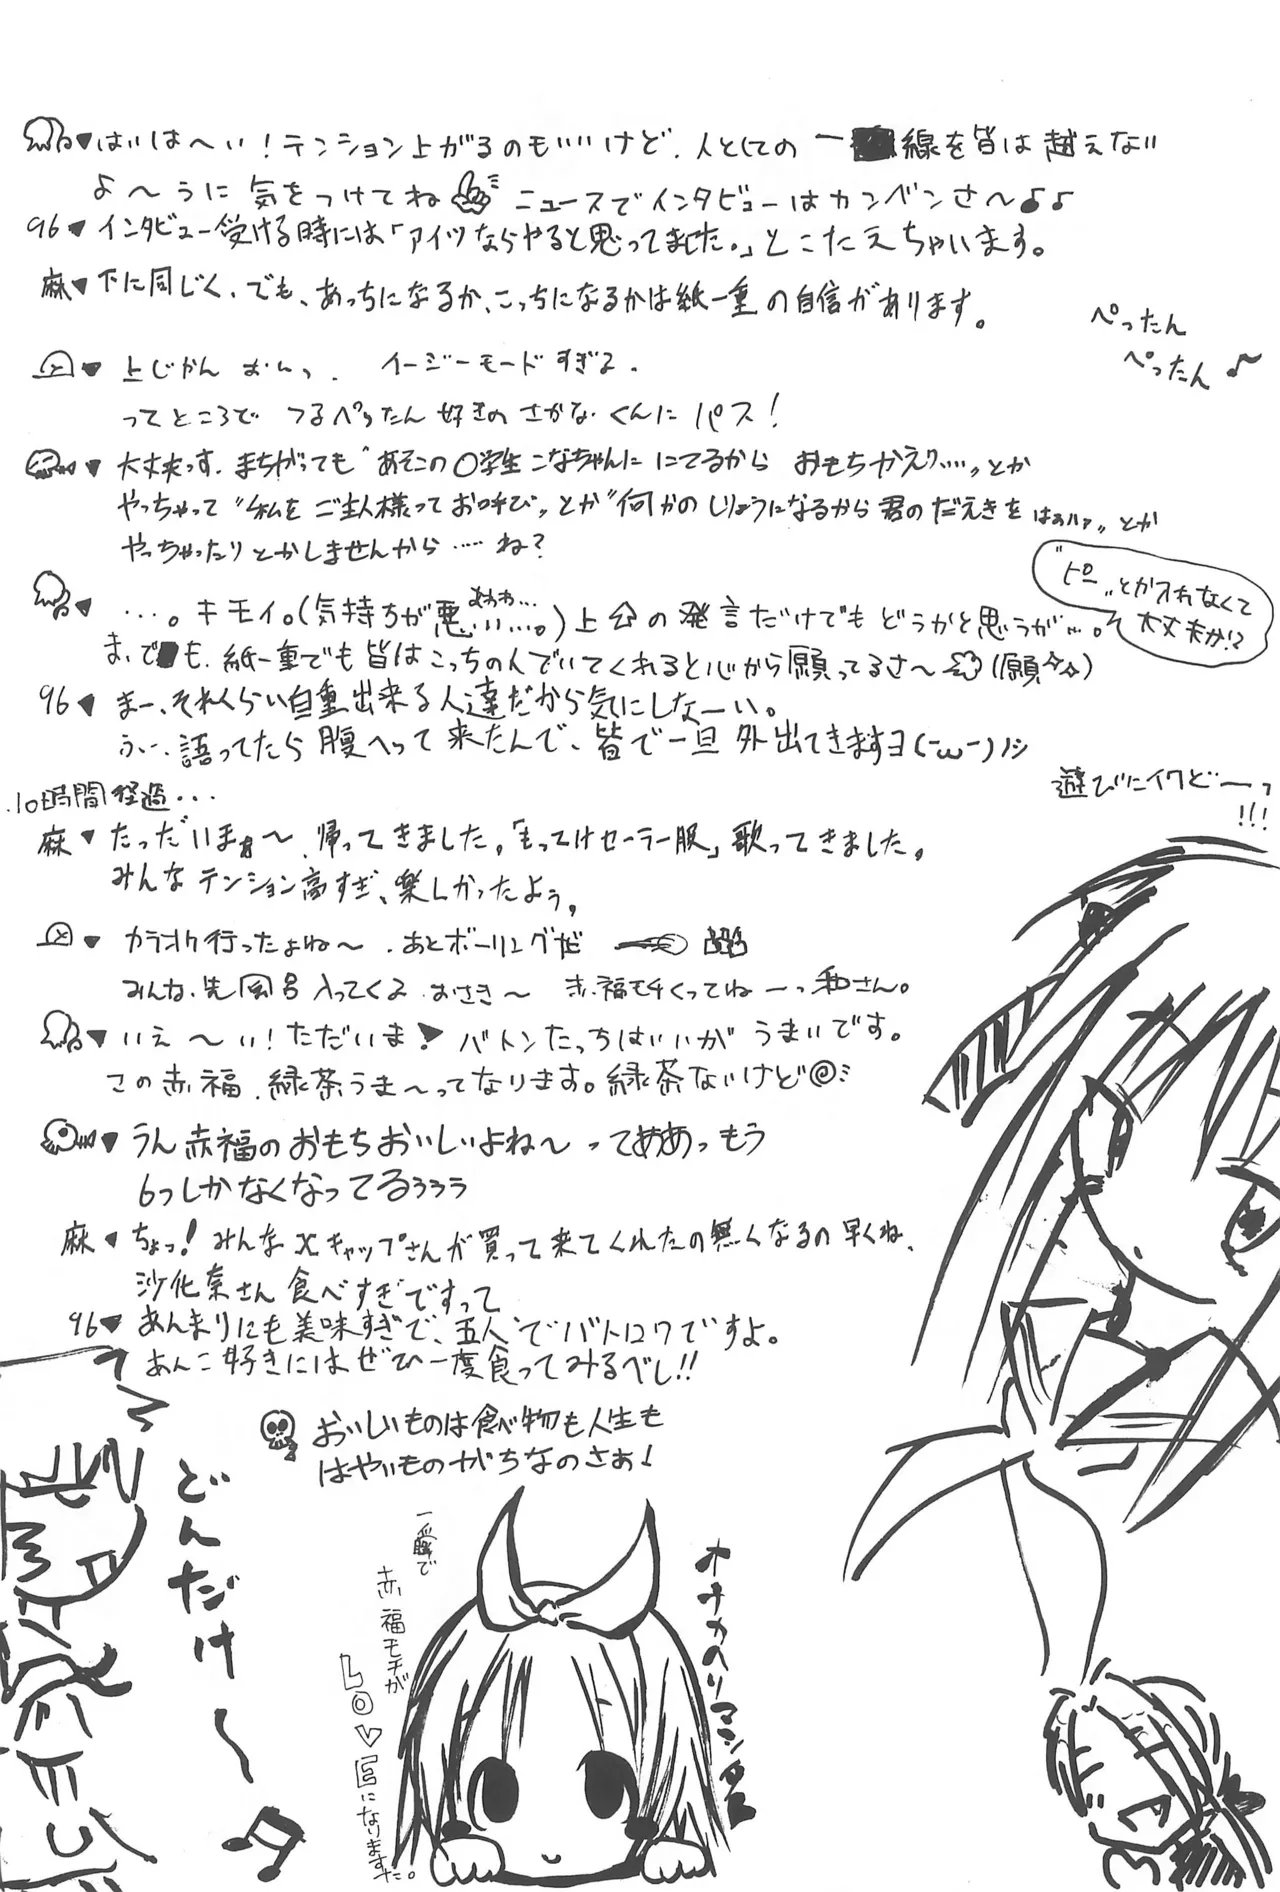 はいは～い！テンション上がるのもいいけど、人としての一線を皆は越えない
よ～うに気をつけてね ニュースでインタビューはカンベンさ～♪♪
96▼インタビュー受ける時には「アイツならやると思ってました。」とこたえちゃいます。
麻▼下に同じく、でも、あっちになるか、こっちになるかは紙一重の自信があります。
ぺったん
ぺったん♪
▼上じかん おいっ、イージーモードすぎる。
ってところで つるぺったん好きの さかなくんに パス！
▼大丈夫っす、まちがっても“あそこの〇学生こなちゃんににてるから おもちかえり……„とか
やっちゃって“私をご主人様ってお呼び„とか“何かのじょうになるから君のだえきをはぁハァ„とか
やっちゃったりとかしませんから……ね？
“ピー„とか入れなくて大丈夫か!?
▼…。キモイ。(気持ちが悪い…。)上公の発言だけでもどうかと思うが…。
あわわ…
ま、でも、紙一重でも皆はこっちの人でいてくれると心から願ってるさ～(願)
96▼まー、それくらい自重出来る人達だから気にしなーい。
ふー、語ってたら腹へって来たんで、皆で一旦外出てきますヨ(-ω-)ﾉｼ
10時間経過...
遊びにイクどーっ!!!
麻▼たっだいまぁ～、帰ってきました。「もってけセーラー服」歌ってきました。
みんなテンション高すぎ、楽しかったよぅ。
▼カラオケ行ったよね～、あとボーリングだ
みんな、先風呂入ってくる おさき～ 赤福モチくってねーっ和さん。
▼いえ～い！ただいま！バトンたっちはいいが うまいです。
この赤福、緑茶うま～ってなります。緑茶ないけど@
▼うん赤福のおもちおいしいよね～ってああっもう
6っしかなくなってるぅぅぅ
麻▼ちょっ！みんなxキャップさんが買って来てくれたの無くなるの早くね、
沙化奈さん食べすぎですって
96▼あんまりにも美味すぎで、五人でバトロワですよ。
あんこ好きにはぜひ一度食ってみるべし!!
おいしいものは食べ物も人生も
はやいものがちなのさぁ！
どんだけ～♪
一瞬で
赤福モチが
LO♡Eになりますた。
オナカヘリマシタ